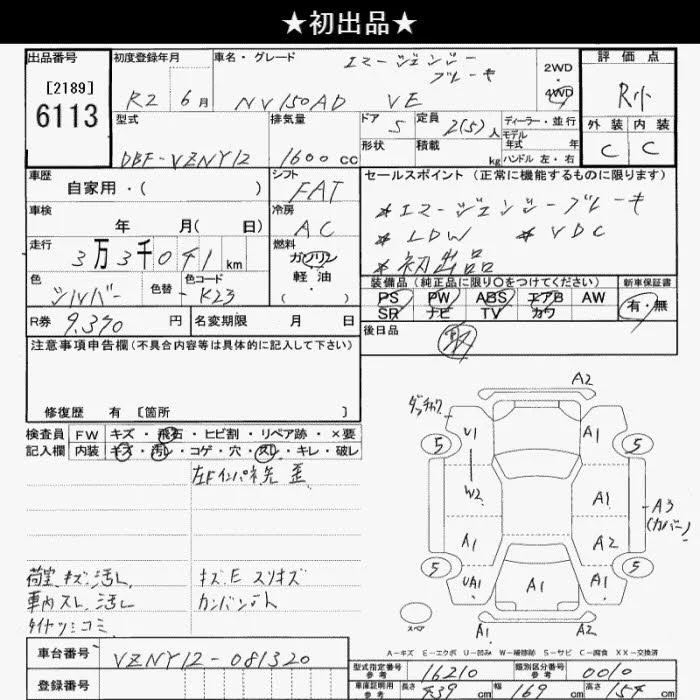 ★初出品★
出品番号
[2189]
6113
初度登録年月
R2 6月
車名・グレード
エマージェンシー
ブレーキ
NV150AD VE
2WD
・
4WD
評価点
R小
外装 内装
C C
型式
DBF-VZNY12
排気量
1600cc
ドア
5
定員
2(5)人
形状
積載
kg
ディーラー・並行
モデル
年式 年
ハンドル 左・右
車歴
自家用・( )
シフト
FAT
車検
年 月( 日)
冷房
AC
走行
3万3千041km
燃料
ガソリン
軽・油
( ・ )
色
シルバー
色替
色コード
K23
R券
9,370円
名変期限 月 日
セールスポイント(正常に機能するものに限ります)
*エマージェンシーブレーキ
*LDW *VDC
*初出品
装備品(純正品に限り○をつけてください)
PS PW ABS エアB AW
SR ナビ TV カワ
新車保証書
有・無
後日品
注意事項申告欄(不具合内容等は具体的に記入して下さい)
修復歴 有 [箇所 ]
検査員
記入欄
FW キズ・飛石・ヒビ割・リペア跡・×要
内装 キズ・汚レ・コゲ・穴・スレ・キレ・破レ
左Fインパネ先 歪
荷室キズ、汚レ
車内スレ、汚レ
タイヤツミコミ
キズE スリキズ
カンバンアト
車台番号
VZNY12-081320
登録番号
A2
5
U1
A1
5
W2
A1
A3
(カバー)
A1
A2
5
UA1
A1
A1
5
スペア
A1
A2
A-キズ E-エクボ U-凹み W-補修跡 S-サビ C-腐食 XX-交換済
型式指定番号
参考
16210
類別区分番号
参考
0010
車庫証明用
参考
長さ
439cm
幅
169cm
高さ
154cm